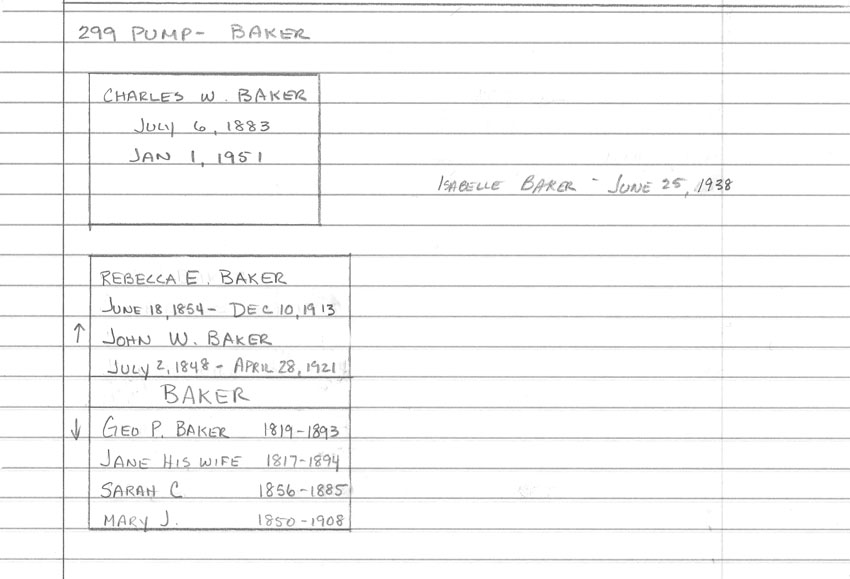 299 PUMP- BAKER
CHARLES W. BAKER
JULY 6, 1883
JAN 1, 1951
ISABELLE BAKER - JUNE 25, 1938
REBECCA E. BAKER
JUNE 18, 1854 - DEC 10, 1913
↑ JOHN W. BAKER
JULY 2, 1848 - APRIL 28, 1921
BAKER
↓ GEO P. BAKER 1819-1893
JANE HIS WIFE 1817-1894
SARAH C. 1856-1885
MARY J. 1850-1908